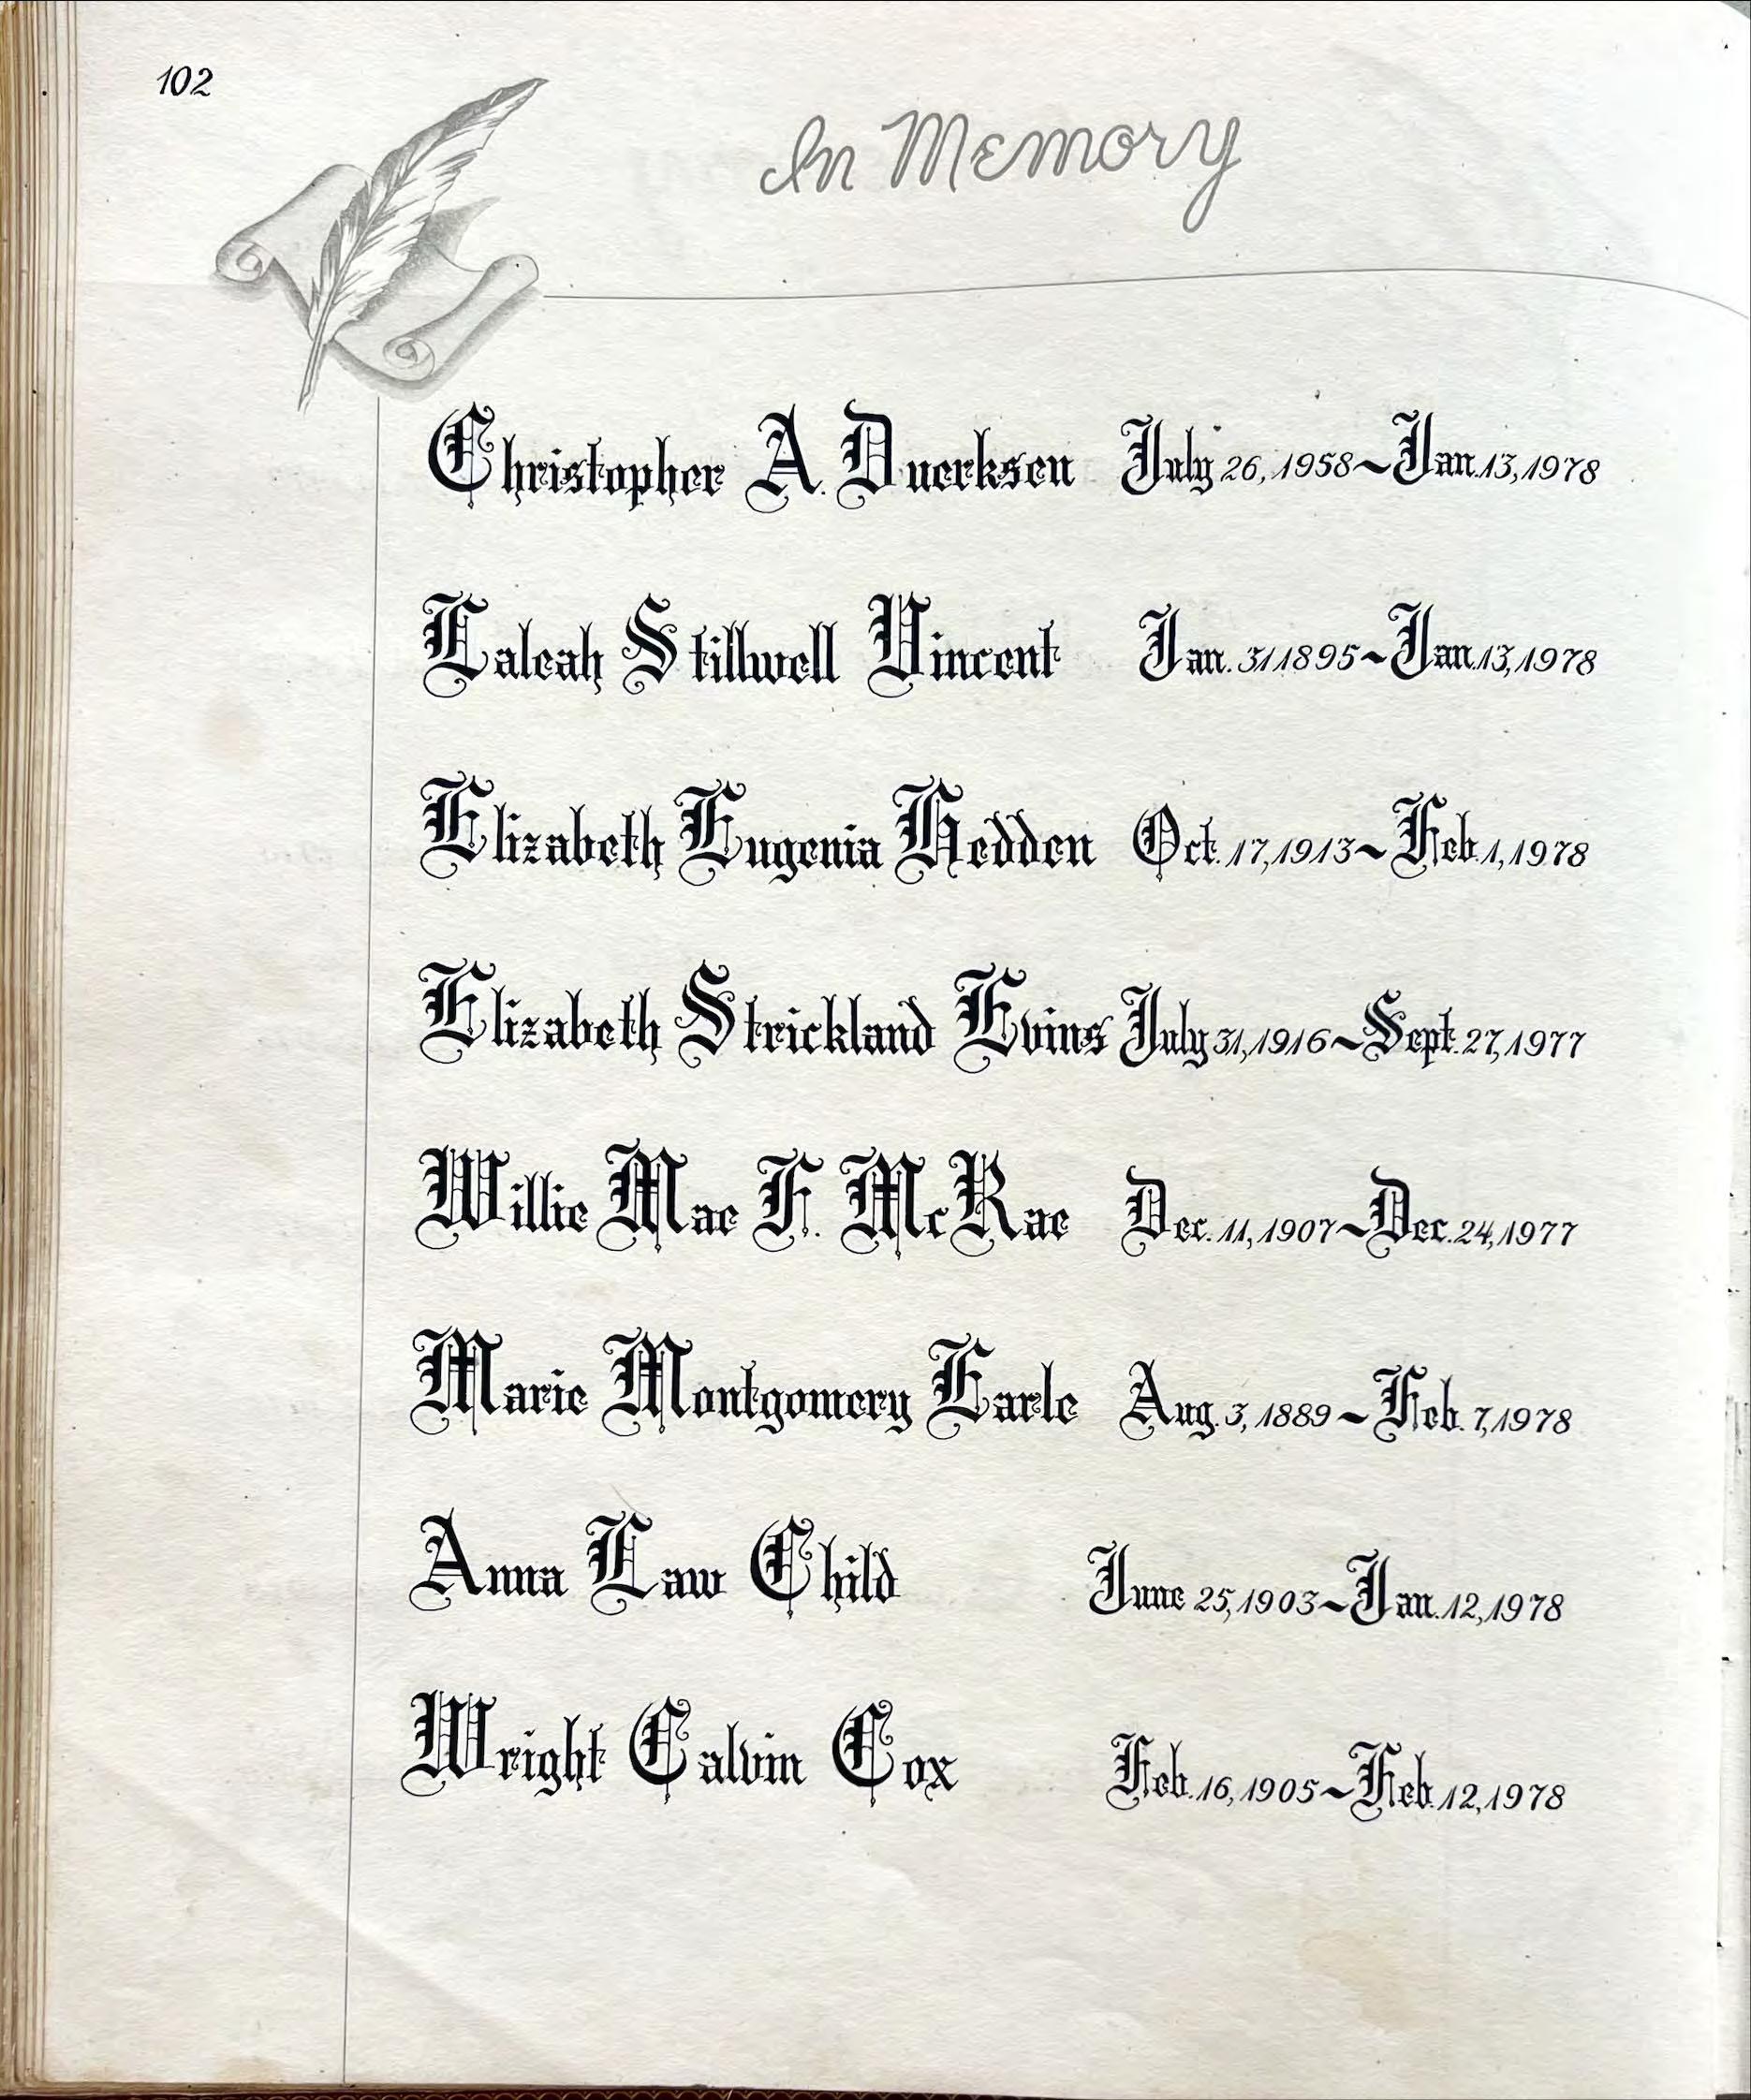 102
In Memory
Christopher A. Duerksen July 26, 1958~Jan. 13, 1978
Laleah Stillwell Vincent Jan. 31 1895~Jan. 13, 1978
Elizabeth Eugenia Hedden Oct. 17, 1913~Feb. 1, 1978
Elizabeth Strickland Evins July 31, 1916~Sept. 27, 1977
Willie Mae F. McRae Dec. 11, 1907~Dec. 24, 1977
Marie Montgomery Earle Aug. 3, 1889~Feb. 7, 1978
Anna Law Child June 25, 1903~Jan. 12, 1978
Wright Calvin Cox Feb. 16, 1905~Feb. 12, 1978